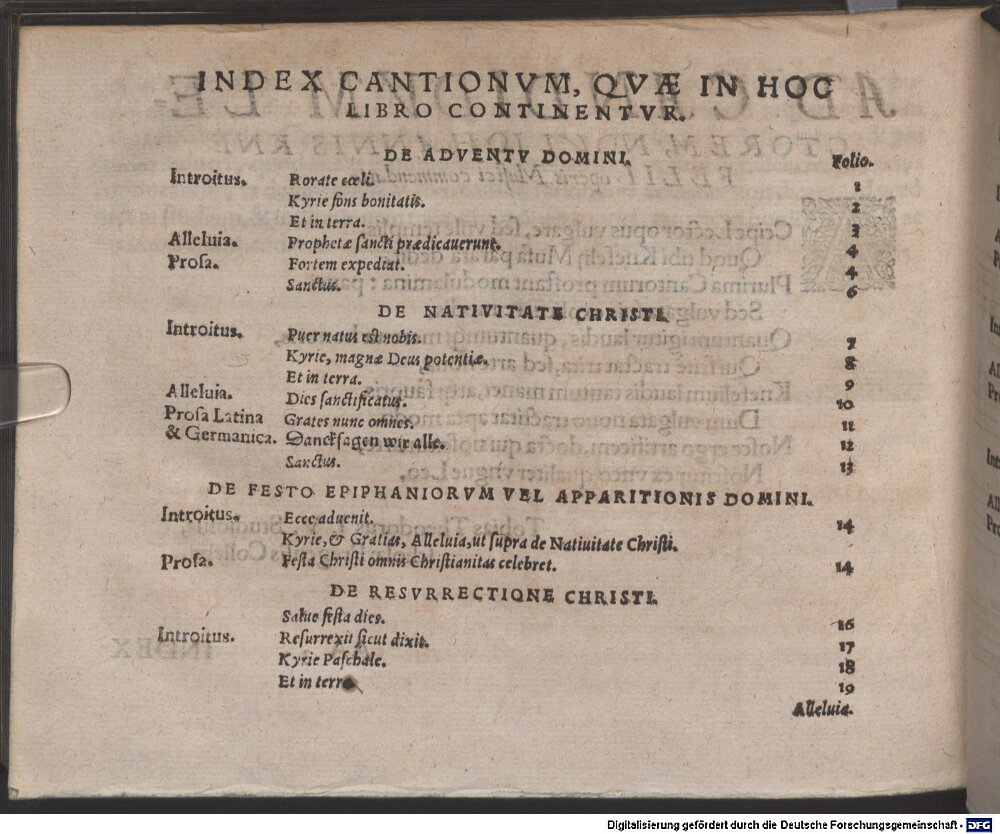 INDEX CANTIONVM, QVÆ IN HOC
LIBRO CONTINENTVR.
DE ADVENTV DOMINI. Folio.
Introitus. Rorate cœli. 1
Kyrie fons bonitatis. 2
Et in terra. 3
Alleluia. Prophetæ sancti prædicauerunt. 4
Prosa. Fortem expediat. 4
Sanctus. 6
DE NATIVITATE CHRISTI.
Introitus. Puer natus est nobis. 7
Kyrie, magnæ Deus potentiæ. 8
Et in terra. 9
Alleluia. Dies sanctificatus. 10
Prosa Latina Grates nunc omnes. 11
& Germanica. Dancksagen wir alle. 12
Sanctus. 13
DE FESTO EPIPHANIORVM VEL APPARITIONIS DOMINI.
Introitus. Ecce aduenit. 14
Kyrie, & Gratias, Alleluia, ut supra de Natiuitate Christi.
Prosa. Festa Christi omnis Christianitas celebret. 14
DE RESVRRECTIONE CHRISTI.
Salue festa dies. 16
Introitus. Resurrexit sicut dixit. 17
Kyrie Paschale. 18
Et in terra 19
Alleluia.
Digitalisierung gefördert durch die Deutsche Forschungsgemeinschaft - DFG